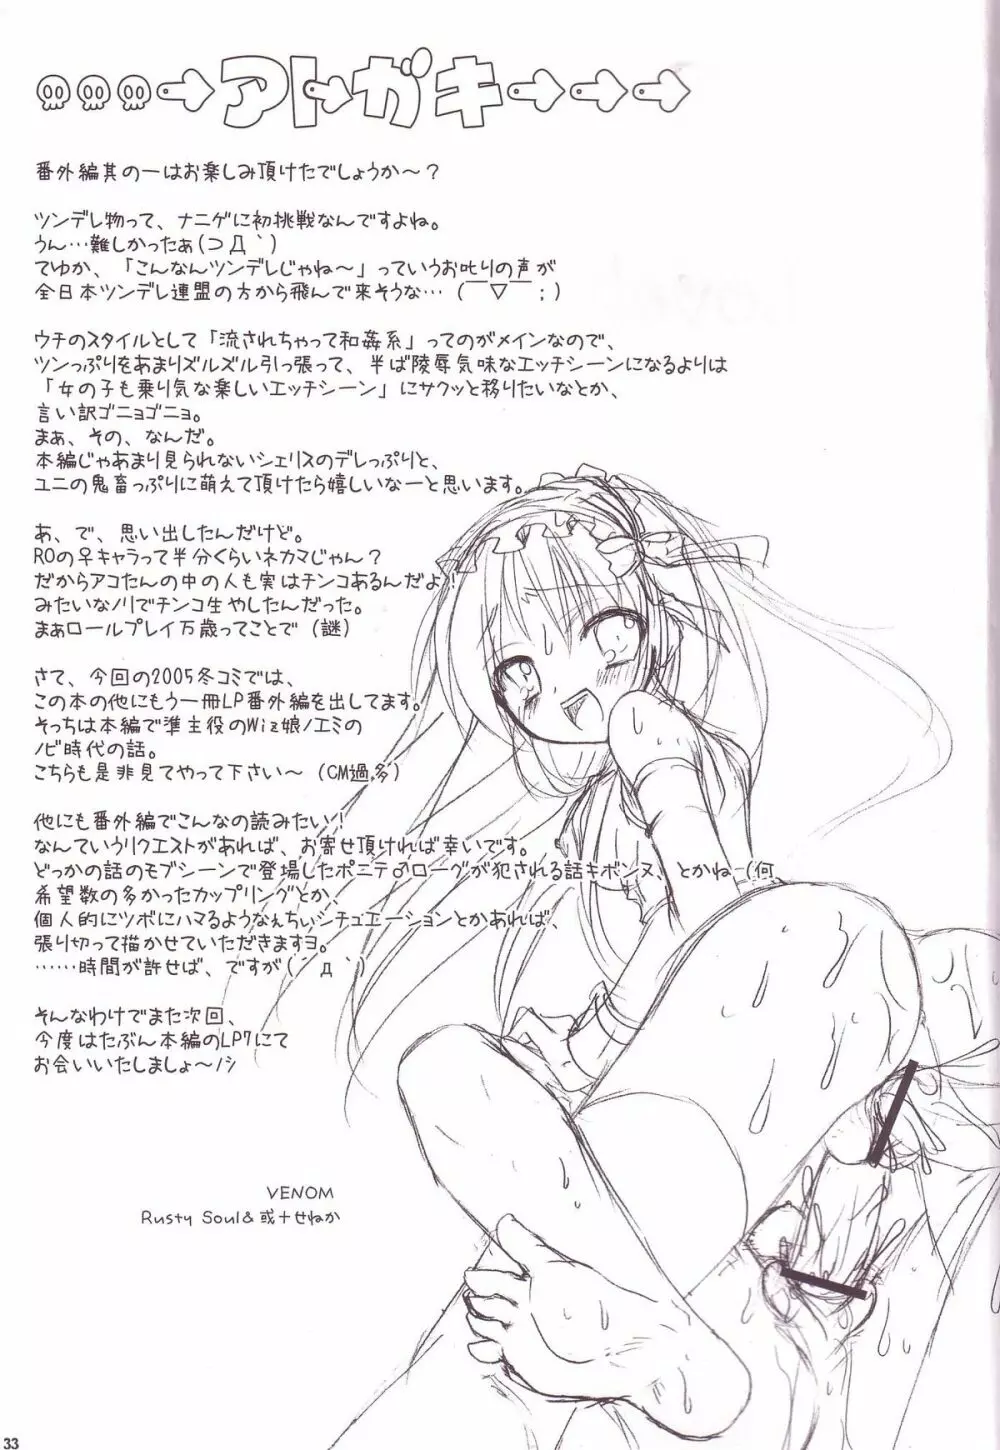 アトガキ
番外編其の一はお楽しみ頂けたでしょうか～？
ツンデレ物って、ナニゲに初挑戦なんですよね。
うん…難しかったぁ(⊃Д｀)
てゆか、「こんなんツンデレじゃね～」っていうお叱りの声が
全日本ツンデレ連盟の方から飛んで来そうな…(￣▽￣；)
ウチのスタイルとして「流されちゃって和姦系」ってのがメインなので、
ツンっぷりをあまりズルズル引っ張って、半ば陵辱気味なエッチシーンになるよりは
「女の子も乗り気な楽しいエッチシーン」にサクッと移りたいなとか、
言い訳ゴニョゴニョ。
まぁ、その、なんだ。
本編じゃあまり見られないシェリスのデレっぷりと、
ユニの鬼畜っぷりに萌えて頂けたら嬉しいなーと思います。
あ、で、思い出したんだけど。
ROの♀キャラって半分くらいネカマじゃん？
だからアコたんの中の人も実はチンコあるんだよ！
みたいなノリでチンコ生やしたんだった。
まぁロールプレイ万歳ってことで(謎)
さて、今回の2005冬コミでは、
この本の他にもう一冊LP番外編を出してます。
そっちは本編で準主役のWiz娘ノエミの
ノビ時代の話。
こちらも是非見てやって下さい～(CM過多)
他にも番外編でこんなの読みたい！
なんていうリクエストがあれば、お寄せ頂ければ幸いです。
どっかの話のモブシーンで登場したポニテ♂ローグが犯される話キボンヌ、とかね-(何
希望数の多かったカップリングとか、
個人的にツボにハマるようなえちぃシチュエーションとかあれば、
張り切って描かせていただきますヨ。
……時間が許せば、ですが(´д｀)
そんなわけでまた次回、
今度はたぶん本編のLP7にて
お会いいたしましょ～ノシ
VENOM
Rusty Soul＆或十せねか
33